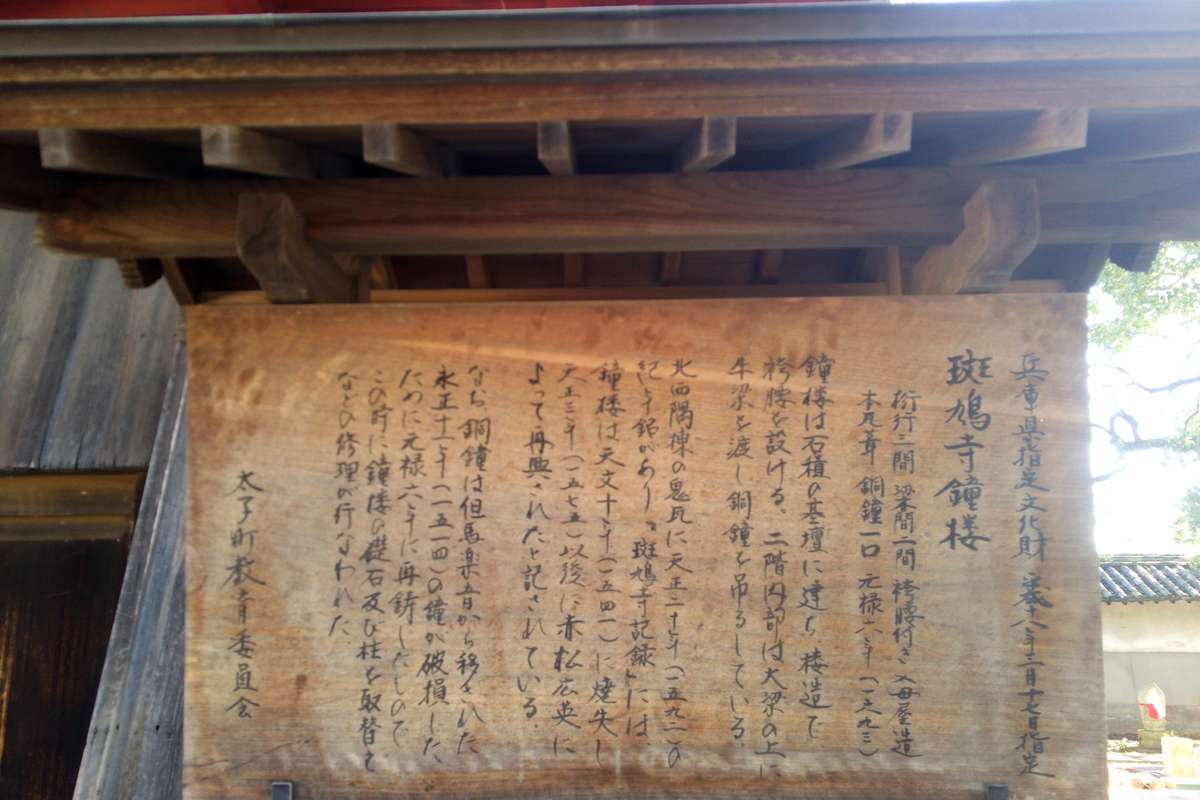 兵庫県指定文化財 昭和六十八年三月十七日指定
斑鳩寺鐘楼
桁行三間 梁間二間 袴腰付き 入母屋造
本瓦葺 銅鐘一口 元禄六年(一六九三)
鐘楼は石積の基壇に建ち楼造で
袴腰を設ける。二階内部は大梁の上に
牛梁を渡し銅鐘を吊るしている。
北西隅棟の鬼瓦に天正二十年(一五九二)の
紀年銘があり『斑鳩寺記録』には、
鐘楼は天文十年(一五四一)に焼失し
天正三年(一五七五)以後に赤松広英に
よって再興されたと記されている。
なお銅鐘は但馬楽音から移された
永正十一年(一五一四)の鐘が破損した
ために元禄六年に再鋳したもので
この前に鐘楼の礎石及び柱を取替え
などの修理が行なわれた。
太子町教育委員会